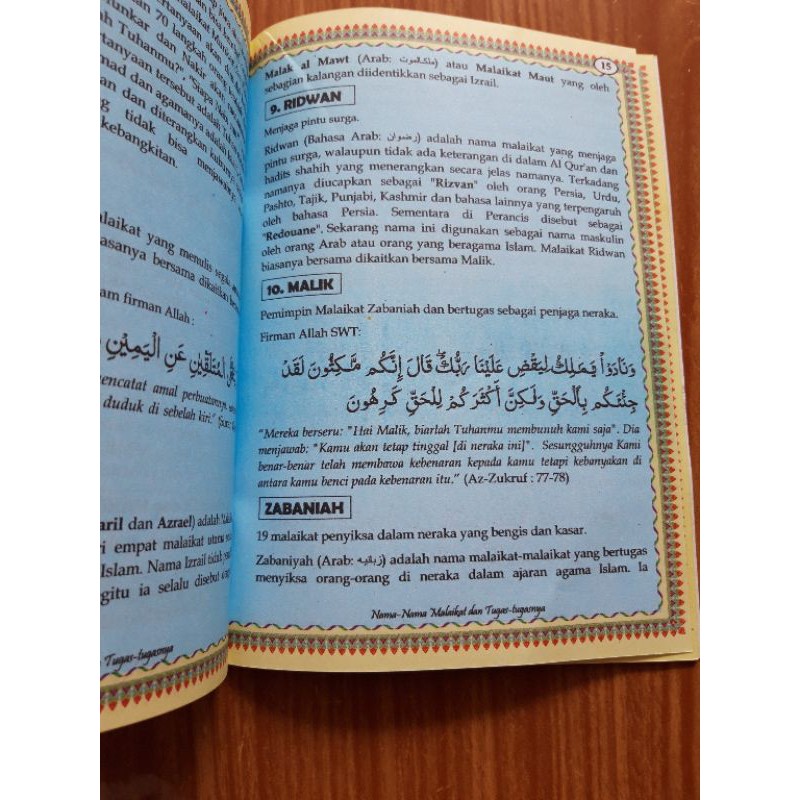 rtanyaan
an 70 langkah orang
unkar dan Nakir akan
h Tuhanmu?" "Siapa Nabi
rtanyaan tersebut adalah
mad dan agamanya adalah
n dan diterangkan kuburnya
tidak bisa menjawabnya
kebangkitan.
laikat yang menulis segala
asanya bersama dikaitkan
am firman Allah :
الْمُتَلَقِّيَانِ عَنِ الْيَمِيْنِ
encatat amal perbuatannya,
duduk di sebelah kiri."
aril dan Azrael) adalah
ri empat malaikat utama
Islam. Nama Izrail tidak
gitu ia selalu disebut
Tugas-tugasnya
15
Malak al Mawt (Arab: ملك الموت) atau Malaikat Maut yang oleh
sebagian kalangan diidentikkan sebagai Izrail.
9. RIDWAN
Menjaga pintu surga.
Ridwan (Bahasa Arab: رضوان) adalah nama malaikat yang menjaga
pintu surga, walaupun tidak ada keterangan di dalam Al Qur'an dan
hadits shahih yang menerangkan secara jelas namanya. Terkadang
namanya diucapkan sebagai "Rizvan" oleh orang Persia, Urdu,
Pashto, Tajik, Punjabi, Kashmir dan bahasa lainnya yang terpengaruh
oleh bahasa Persia. Sementara di Perancis disebut sebagai
"Redouane". Sekarang nama ini digunakan sebagai nama maskulin
oleh orang Arab atau orang yang beragama Islam. Malaikat Ridwan
biasanya bersama dikaitkan bersama Malik.
10. MALIK
Pemimpin Malaikat Zabaniah dan bertugas sebagai penjaga neraka.
Firman Allah SWT:
وَنَادَوْا۟ يَـٰمَـٰلِكُ لِيَقْضِ عَلَيْنَا رَبُّكَ ۖ قَالَ إِنَّكُم مَّـٰكِثُونَ لَقَدْ
جِئْنَـٰكُم بِٱلْحَقِّ وَلَـٰكِنَّ أَكْثَرَكُمْ لِلْحَقِّ كَـٰرِهُونَ
"Mereka berseru: "Hai Malik, biarlah Tuhanmu membunuh kami saja". Dia
menjawab: "Kamu akan tetap tinggal [di neraka ini]". Sesungguhnya Kami
benar-benar telah membawa kebenaran kepada kamu tetapi kebanyakan di
antara kamu benci pada kebenaran itu." (Az-Zukruf : 77-78)
ZABANIAH
19 malaikat penyiksa dalam neraka yang bengis dan kasar.
Zabaniyah (Arab: زبانيه) adalah nama malaikat-malaikat yang bertugas
menyiksa orang-orang di neraka dalam ajaran agama Islam. Ia
Nama-Nama Malaikat dan Tugas-tugasnya